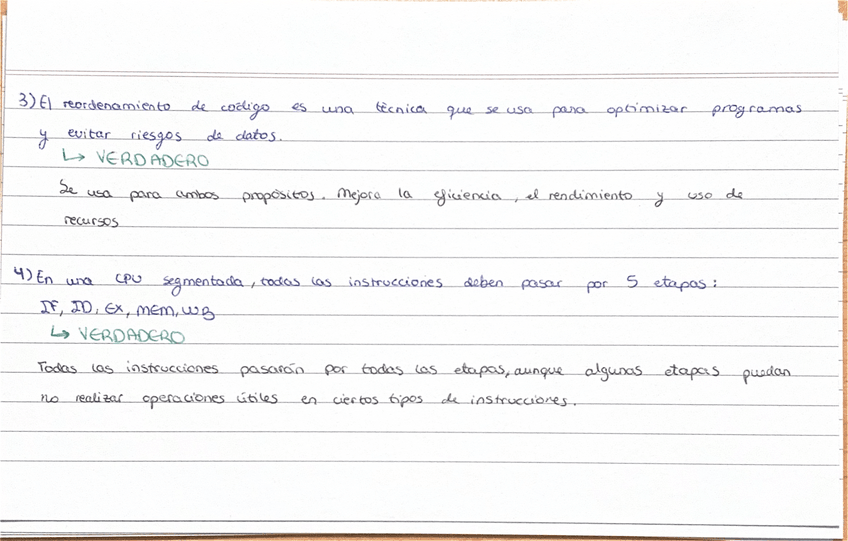 3) El reordenamiento de código es una técnica que se usa para optimizar programas
y evitar riesgos de datos.
↳ VERDADERO
Se usa para ambos propósitos. Mejora la eficiencia, el rendimiento y uso de
recursos
4) En una CPU segmentada, todas las instrucciones deben pasar por 5 etapas:
IF, ID, EX, MEM, WB
↳ VERDADERO
Todas las instrucciones pasarán por todas las etapas, aunque algunas etapas puedan
no realizar operaciones útiles en ciertos tipos de instrucciones.